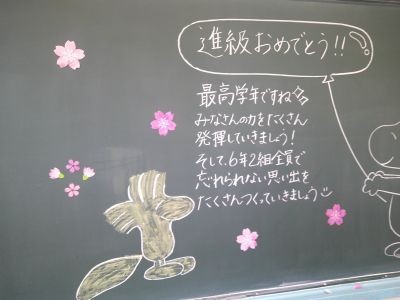 進級おめでとう!!
最高学年ですね
みなさんの力をたくさん
発揮していきましょう!
そして、6年2組全員で
忘れられない思い出を
たくさんつくっていきましょう